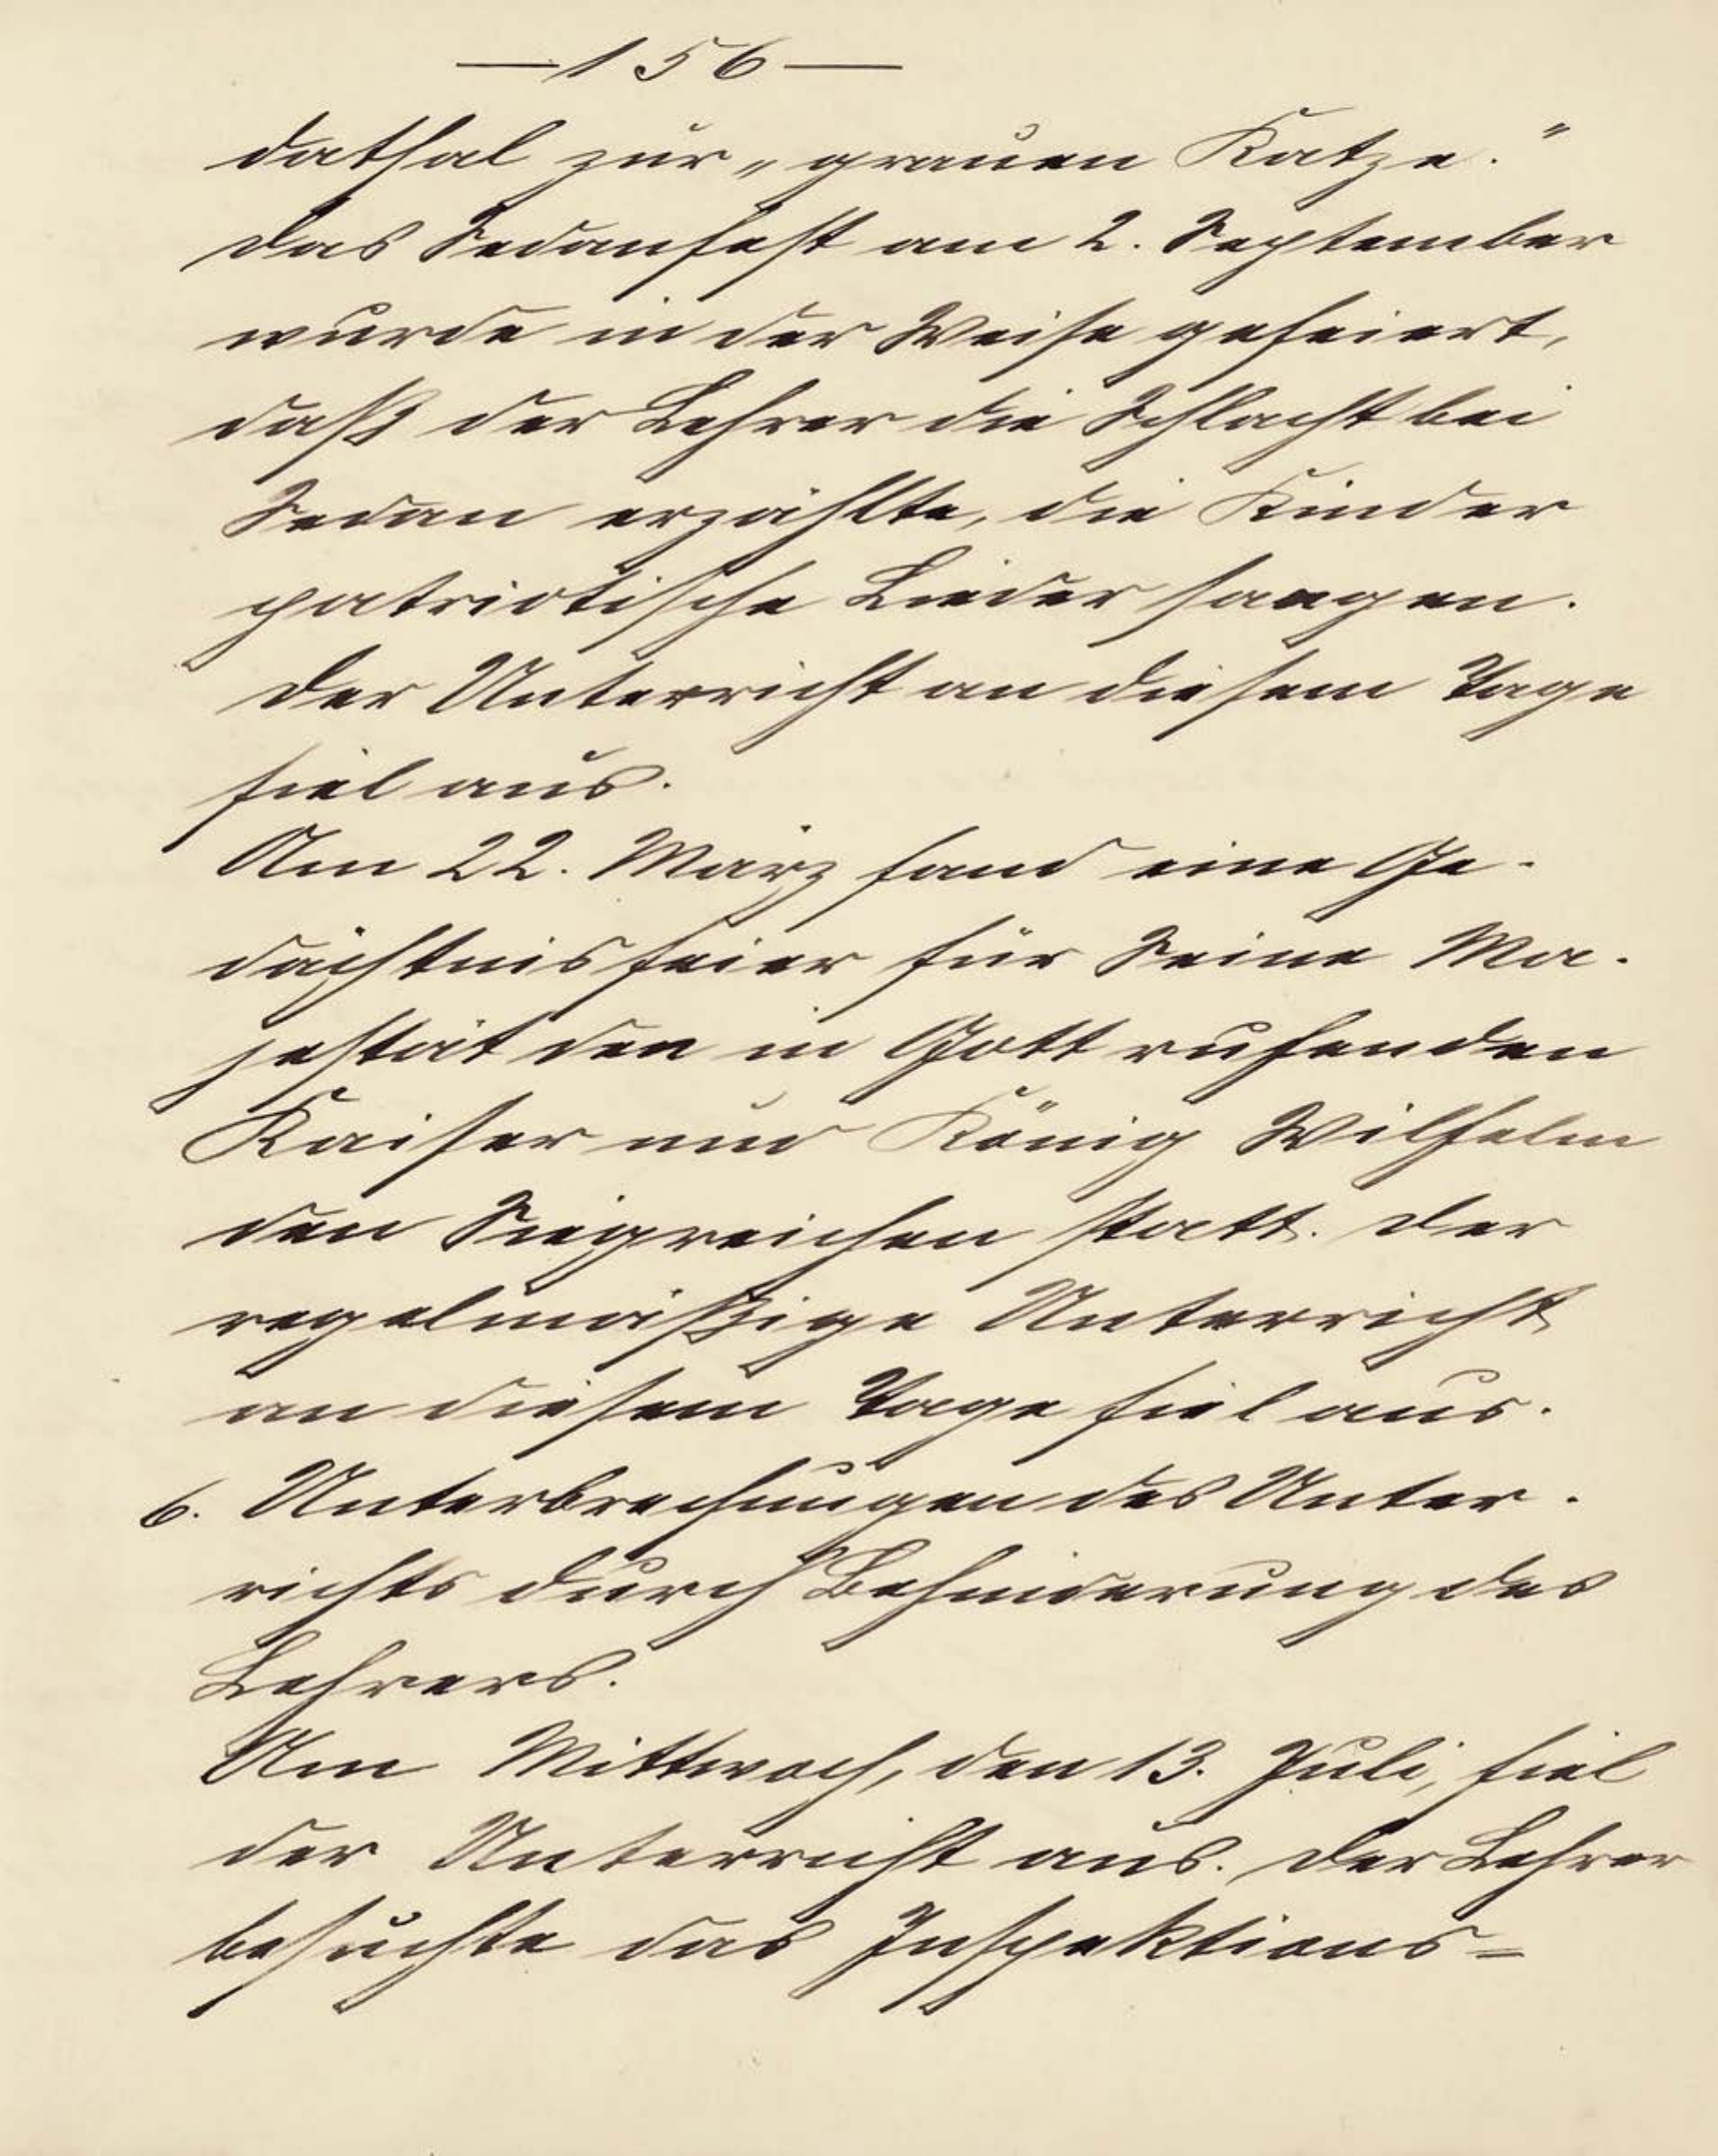 — 156 —
dathal zur „grauen Katze.“
Das Sedanfest am 2. September
wurde in der Weise gefeiert,
daß der Lehrer die Schlacht bei
Sedan erzählte, die Kinder
patriotische Lieder sangen.
Der Unterricht an diesem Tage
fiel aus.
Am 22. März fand eine Ge-
dächtnisfeier für Seine Ma-
jestät den in Gott ruhenden
Kaiser und König Wilhelm
den Siegreichen statt. Der
regelmäßige Unterricht
an diesem Tage fiel aus.
6. Unterbrechungen des Unter-
richts durch Behinderung des
Lehrers.
Am Mittwoch, den 13. Juli, fiel
der Unterricht aus. Der Lehrer
besuchte das Inspektions=